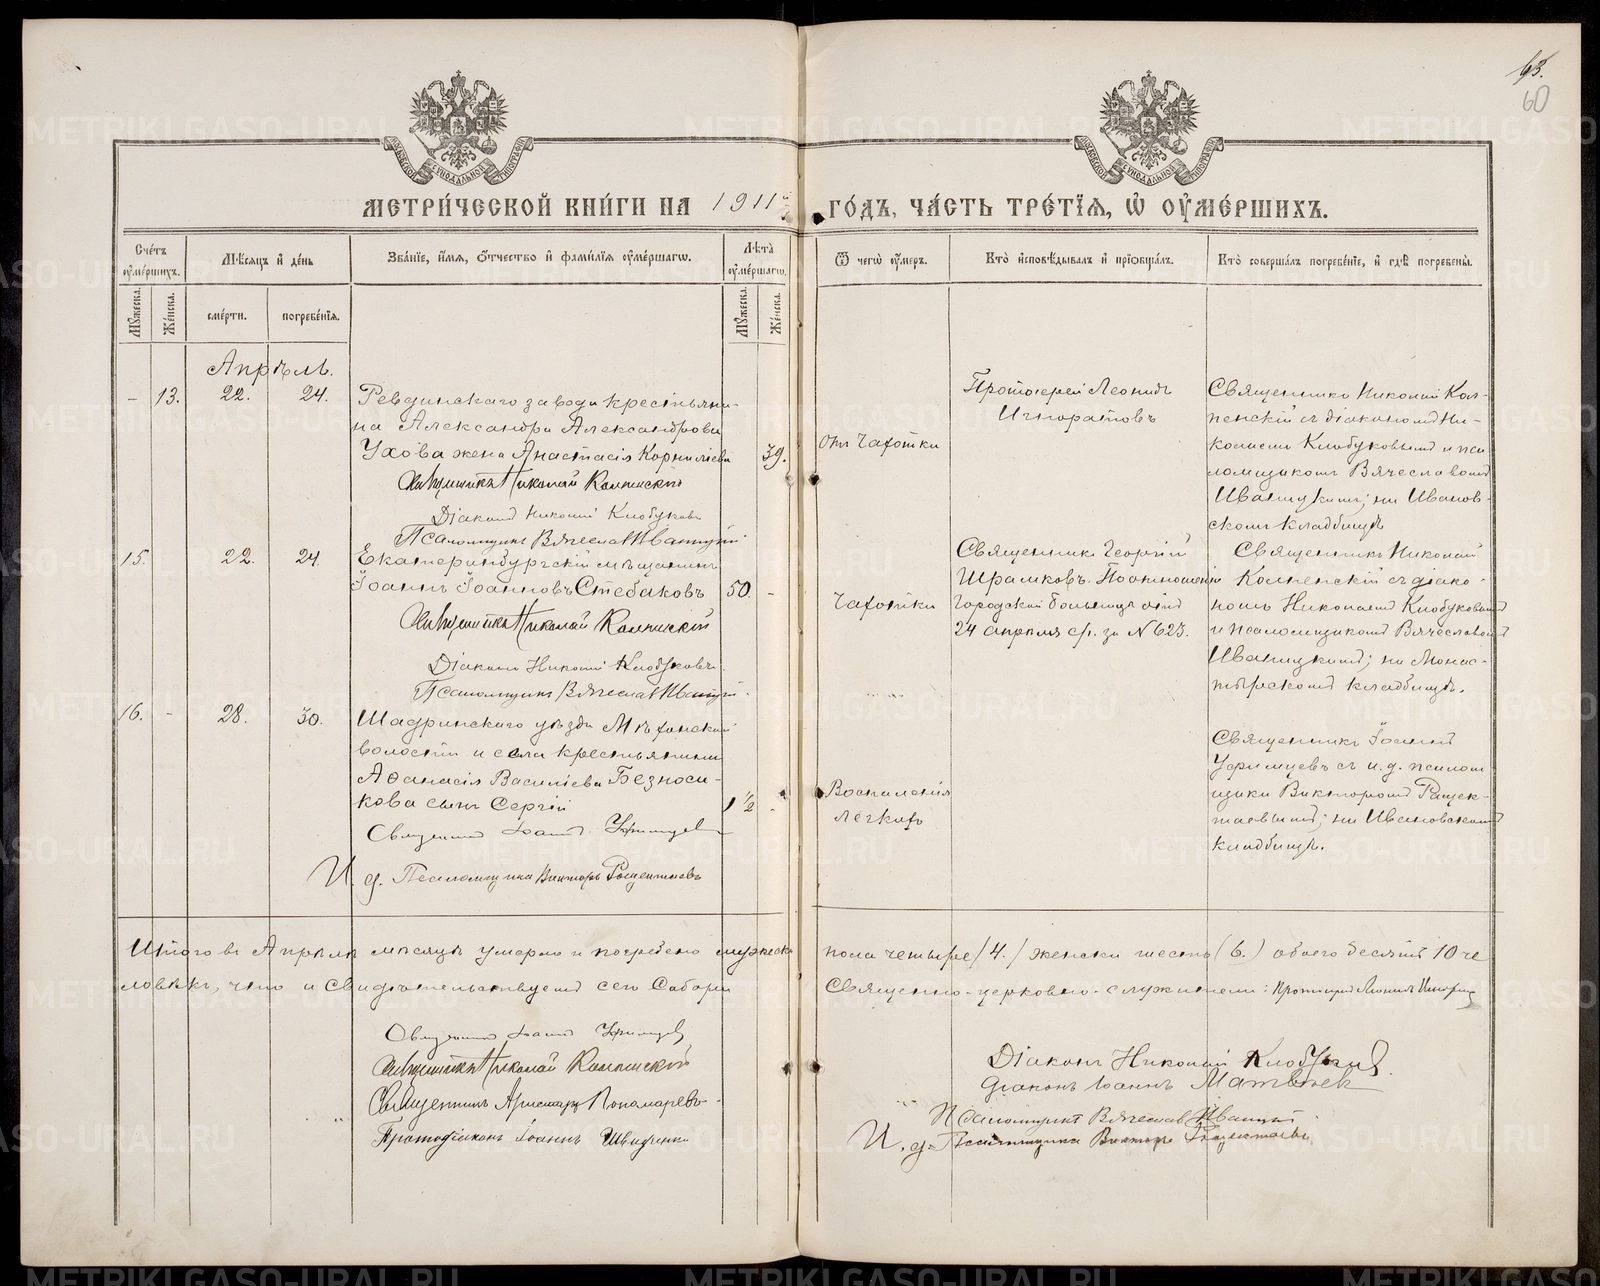 63.
60
МЕТРИ́ЧЕСКОЙ КНИ́ГИ НА 1911й ГО́ДЪ, ЧА́СТЬ ТРЕ́ТІѦ, Ѡ҆ ОУ҆МЕ́РШИХЪ.
Сче́тъ оу҆ме́ршихъ.
Мѣ́сѧцъ и҆ де́нь
Зва́ніе, и҆́мѧ, ѻ҆́тчество и҆ фами́лїѧ оу҆ме́ршагѡ.
Лѣ́та оу҆ме́ршагѡ.
Ѿ чегѡ̀ оу҆́меръ.
Кто̀ и҆сповѣ́дывалъ и҆ прїѡбща́лъ.
Кто̀ соверша́лъ погребе́ніе, и҆ гдѣ̀ погребены̀.
Мꙋ́жеска.
Же́нска.
сме́рти.
погребе́нїѧ.
Мꙋ́жеска.
Же́нска.
Апрѣль.
- 13. 22. 24.
Ревдинскаго завода крестьяни-
на Александра Александрова
Ухова жена Анастасія Корниліева
39.
Священникъ Николай Колпенскій
Діаконъ Николай Клобуковъ
Псаломщикъ Вячеславъ Иваницкій
отъ Чахотки
Протоіерей Леонидъ
Игноратовъ
Священникъ Николай Кол-
пенскій съ діакономъ Ни-
колаемъ Клобуковымъ и пса
ломщикомъ Вячеславомъ
Иваницкимъ; на Иванов-
скомъ кладбищѣ
15. 22. 24.
Екатеринбургскій мѣщанинъ
Іоаннъ Іоанновъ Стебаковъ
50. -
Священникъ Николай Колпенскій
Діаконъ Николай Клобуковъ.
Псаломщикъ Вячеславъ Иваницкій.
Чахотки
Священникъ Георгій
Шрамковъ. По отношенію
Городской больницы отъ
24 апрѣля с/г. за № 623.
Священникъ Николай
Колпенскій съ діако-
номъ Николаемъ Клобуковымъ
и псаломщикомъ Вячеславомъ
Иваницкимъ; на Монас-
тырскомъ кладбищѣ.
16. - 28. 30.
Шадринскаго уѣзда Мѣхонской
волости и села крестьянина
Аѳанасія Василіева Безноси-
кова сынъ Сергій
1 1/2 -
Священникъ Іоаннъ Уфимцевъ
И. д. Псаломщика Викторъ
Воспаленія
легкихъ
Священникъ Іоаннъ
Уфимцевъ съ и. д. псалом
щика Викторомъ
на Ивановскомъ
кладбищѣ.
Итого въ Апрѣлѣ мѣсяцѣ умерло и погребено мужеска пола четыре /4./ женска шесть (6.) обоего десять 10 че
ловѣкъ, что и свидѣтельствуемъ сего Собора Священно-церковно-служители: Протоіерей Леонидъ
Священникъ Іоаннъ Уфимцевъ
Священникъ Николай Колпенскій
Священникъ Аристархъ Пономаревъ
Протодіаконъ Іоаннъ Швидченко
Діаконъ Николай Клобуковъ.
Діаконъ Іоаннъ Матвѣевъ
Псаломщикъ Вячеславъ Иваницкій.
И. д. Псаломщика Викторъ
METRIKI.GASO-URAL.RU